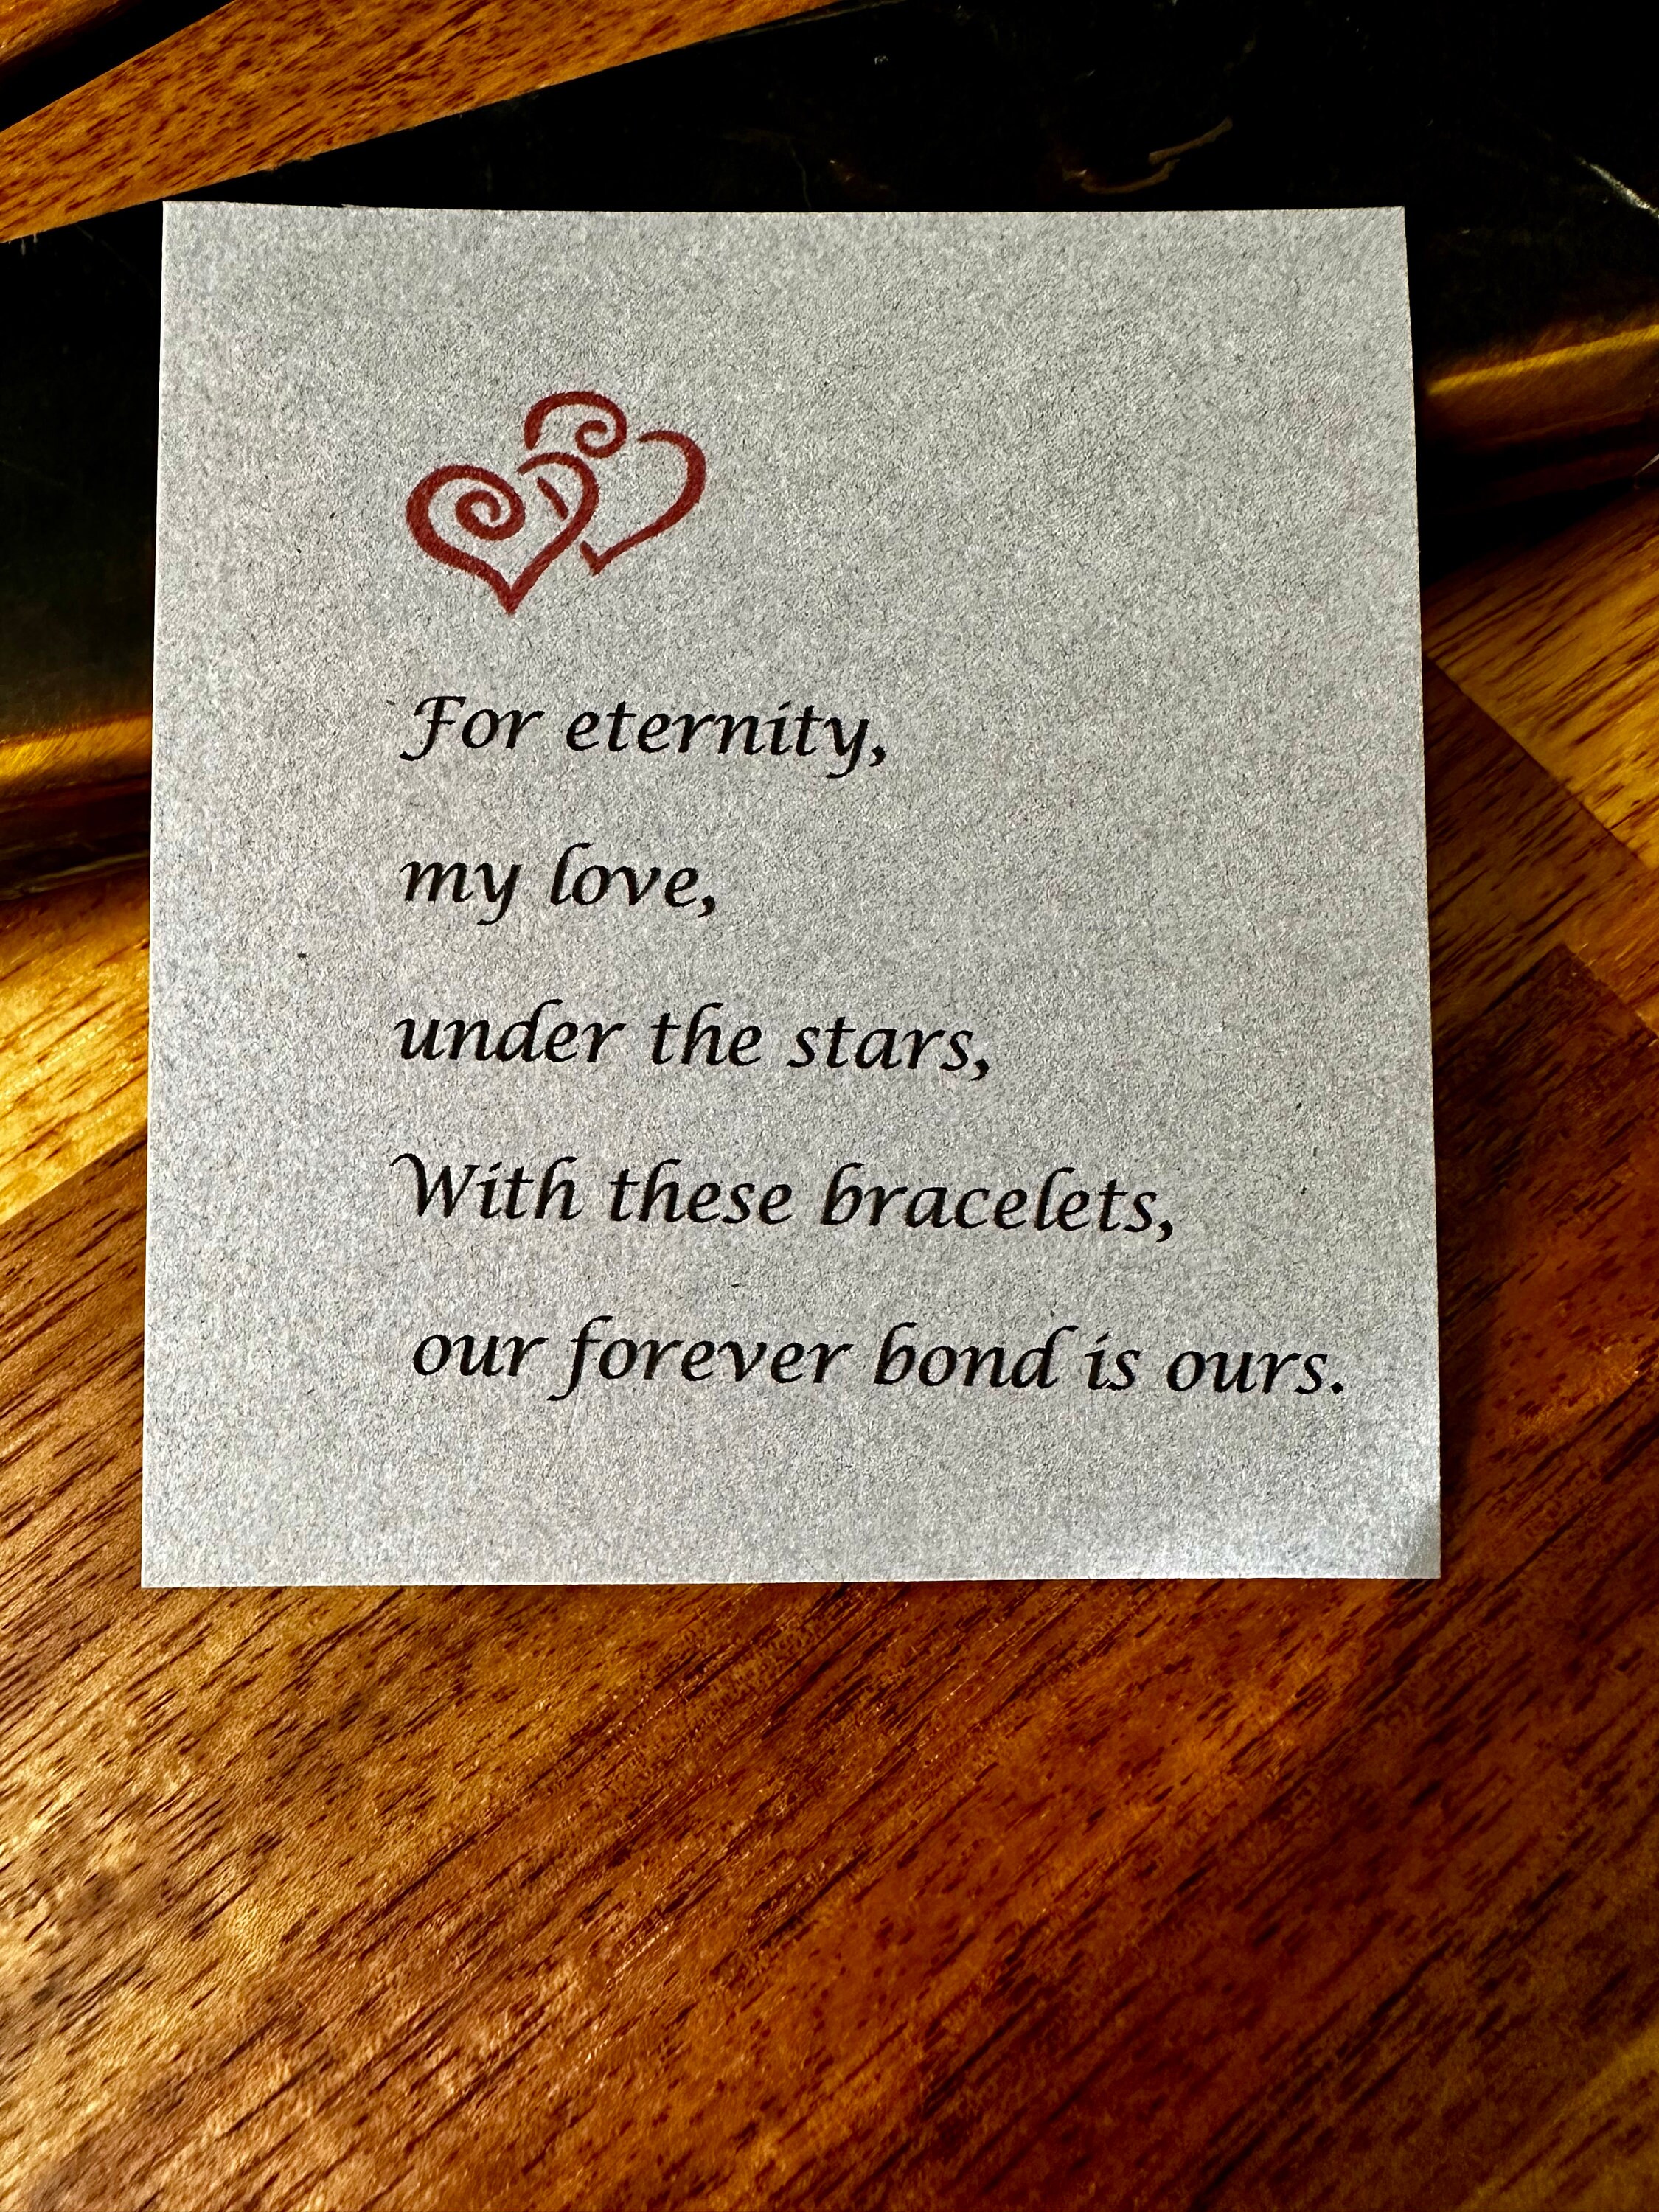 For eternity,
my love,
under the stars,
With these bracelets,
our forever bond is ours.